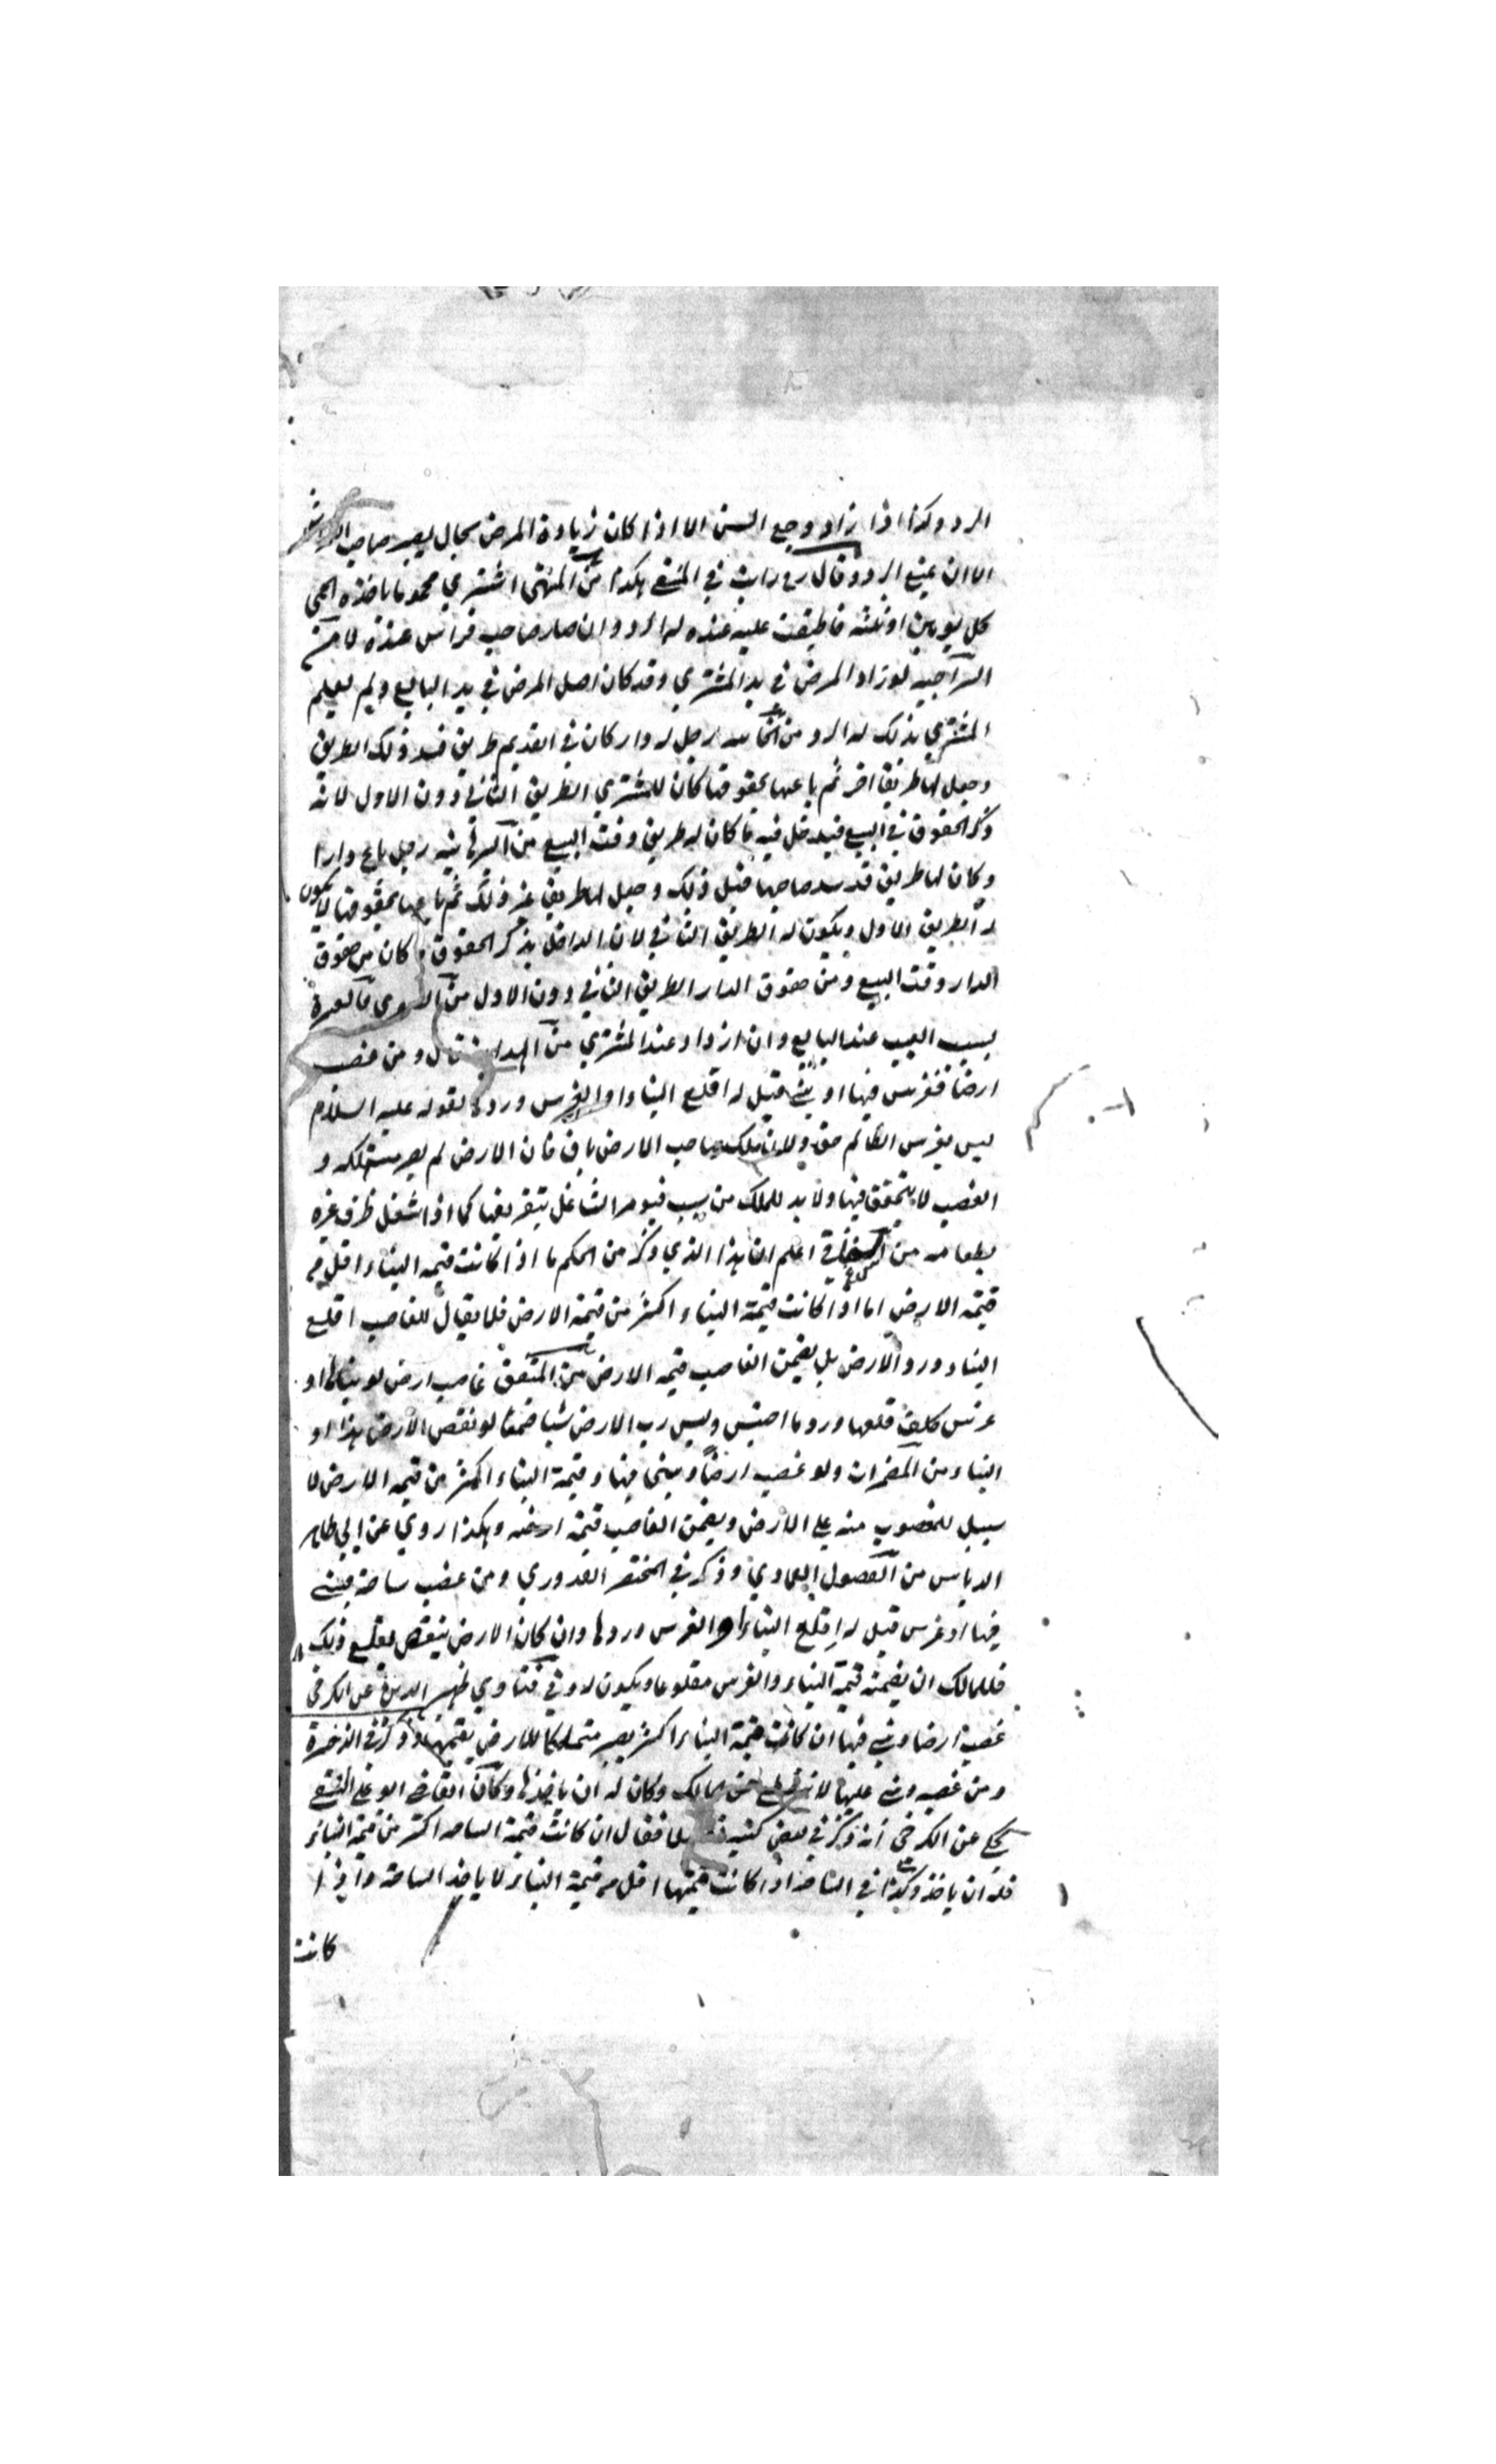 الرد وكذا اذا زاد وجع السن الا اذا كان زيادة المرض بحال يصير صاحب الفراش
الا ان يمنع الرد وقال رح رايت في المنتقى هكذا من المنتهى اشتري محموما ياخذه الحمى
كل يومين او ثلثه فاطبقت عليه عنده له الرد وان صار صاحب فراش عنده لا من
السراجيه لو زاد المرض في يد المشتري وقد كان اصل المرض في يد البايع ولم يعلم
المشتري بذلك له الرد من رجل له دار كان في القديم طريق فسد ذلك الطريق
وجعل لها طريقا اخر ثم باعها بحقوقها كان للمشتري الطريق الثاني دون الاول لانه
ذكر الحقوق في البيع فيدخل فيه ما كان له طريق وقت البيع من رجل باع دارا
وكان لها طريق قد سد صاحبها قبل ذلك وجعل لها طريق غير ذلك ثم باعها بحقوقها لا يكون
له الطريق الاول ويكون له الطريق الثاني لان الداخل بذكر الحقوق ما كان من حقوق
الدار وقت البيع ومن حقوق الدار الطريق الثاني دون الاول من
بسبب العيب عند البايع وان ازداد عند المشتري من الهداية قال ومن غصب
ارضا فغرس فيها او بنى قيل له اقلع البناء او الغرس وردها لقوله عليه السلام
ليس بغرس الظالم حق ولان ملك صاحب الارض باق فان الارض لم يصر مستهلكه و
الغصب لا يتحقق فيها ولا بد للملك من سبب فيومر الشاغل بتفريغها كما اذا شغل ظرف غيره
بطعامه من اعلم ان هذا الذي ذكر من الحكم ما اذا كانت قيمه البناء اقل من
قيمه الارض اما اذا كانت قيمة البناء اكثر من قيمة الارض فلا يقال للغاصب اقلع
البناء ورد الارض بل يضمن الغاصب قيمه الارض من المتفق غاصب ارض لو بناها او
غرس كلف قلعها ورد ما احتبس وليس رب الارض شيا ضمنا لو نقص الارض هذا او
البناء من المضمرات ولو غصب ارضا وبنى فيها وقيمة البناء اكثر من قيمه الارض لا
سبيل للمغصوب منه على الارض ويضمن الغاصب قيمة ارضه وهكذا روي عن ابي طاهر
الدباس من الفصول العمادي وذكر في المختصر القدوري ومن غصب ساحة فبنى
فيها او غرس قيل له اقلع البناء او الغرس وردها وان كان الارض ينقص بقلع ذلك
فللمالك ان يضمنه قيمة البناء والغرس مقلوعا ويكون له وفي فتاوي ظهير الدين عن الكرخي
غصب ارضا وبنى فيها ان كانت قيمة البناء اكثر يصير متملكا للارض بقيمتها وذكر في الذخيرة
ومن غصب وبنى عليها لانه المالك وكان له ان ياخذها وكان القاضي ابو علي النسفي
يحكي عن الكرخي انه ذكر في بعض كتبه فقال ان كانت قيمة الساحه اكثر من قيمة البناء
فله ان ياخذ وكذا في الساحه اذا كانت قيمتها اقل من قيمة البناء لا ياخذ الساحة واذا
كانت